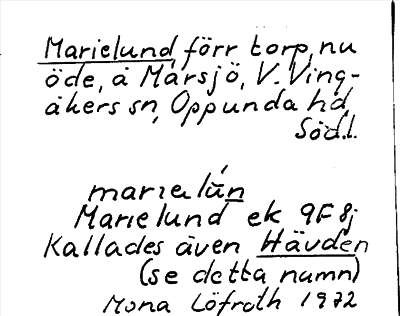 Marielund, förr torp, nu
öde, å Mårsjö, V. Ving-
åkers sn, Oppunda hd,
Söd.l.
marıalún
Marielund ek 9F8j
Kallades även Hävden
(se detta namn)
Mona Löfroth 1972